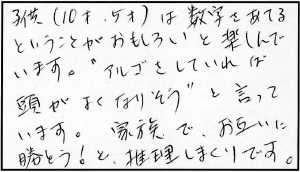 子供（10才、5才）は数字をあてる
ということがおもしろいと楽しんで
います。"アルゴをしていれば
頭がよくなりそう"と言って
います。 家族で、お互いに
勝とう！と、推理しまくりです。